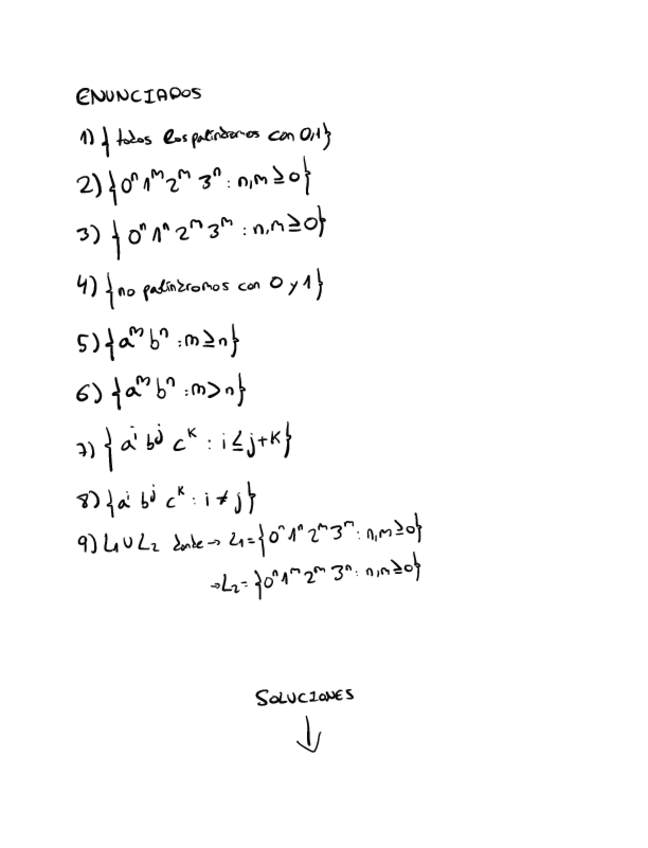 ENUNCIADOS
1) { todos los palíndromos con 0,1}
2) {0ⁿ 1ᵐ 2ᵐ 3ⁿ : n,m ≥ 0}
3) { 0ⁿ 1ⁿ 2ᵐ 3ᵐ : n,m ≥ 0}
4) {no palíndromos con 0 y 1}
5) {aᵐ bⁿ : m ≥ n}
6) {aᵐ bⁿ : m > n}
7) { aⁱ bʲ cᴷ : i ≤ j+K}
8) {aⁱ bʲ cᴷ : i ≠ j}
9) L1 ∪ L2 donde → L1 = {0ⁿ 1ⁿ 2ᵐ 3ᵐ : n,m ≥ 0}
→ L2 = {0ⁿ 1ᵐ 2ᵐ 3ⁿ : n,m ≥ 0}
SOLUCIONES
↓